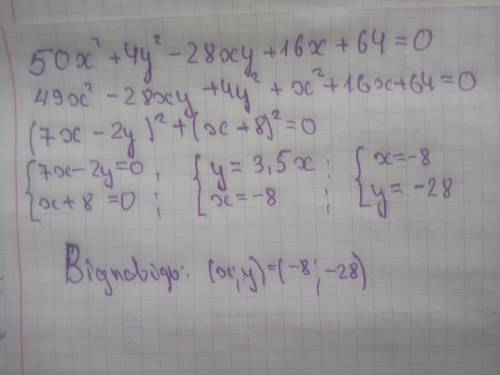 50x² + 4y² - 28xy + 16x + 64 = 0
49x² - 28xy + 4y² + x² + 16x + 64 = 0
(7x - 2y)² + (x + 8)² = 0
{7x - 2y = 0, {y = 3,5x; {x = -8
{x + 8 = 0; {x = -8; {y = -28
Відповідь: (x, y) = (-8; -28)